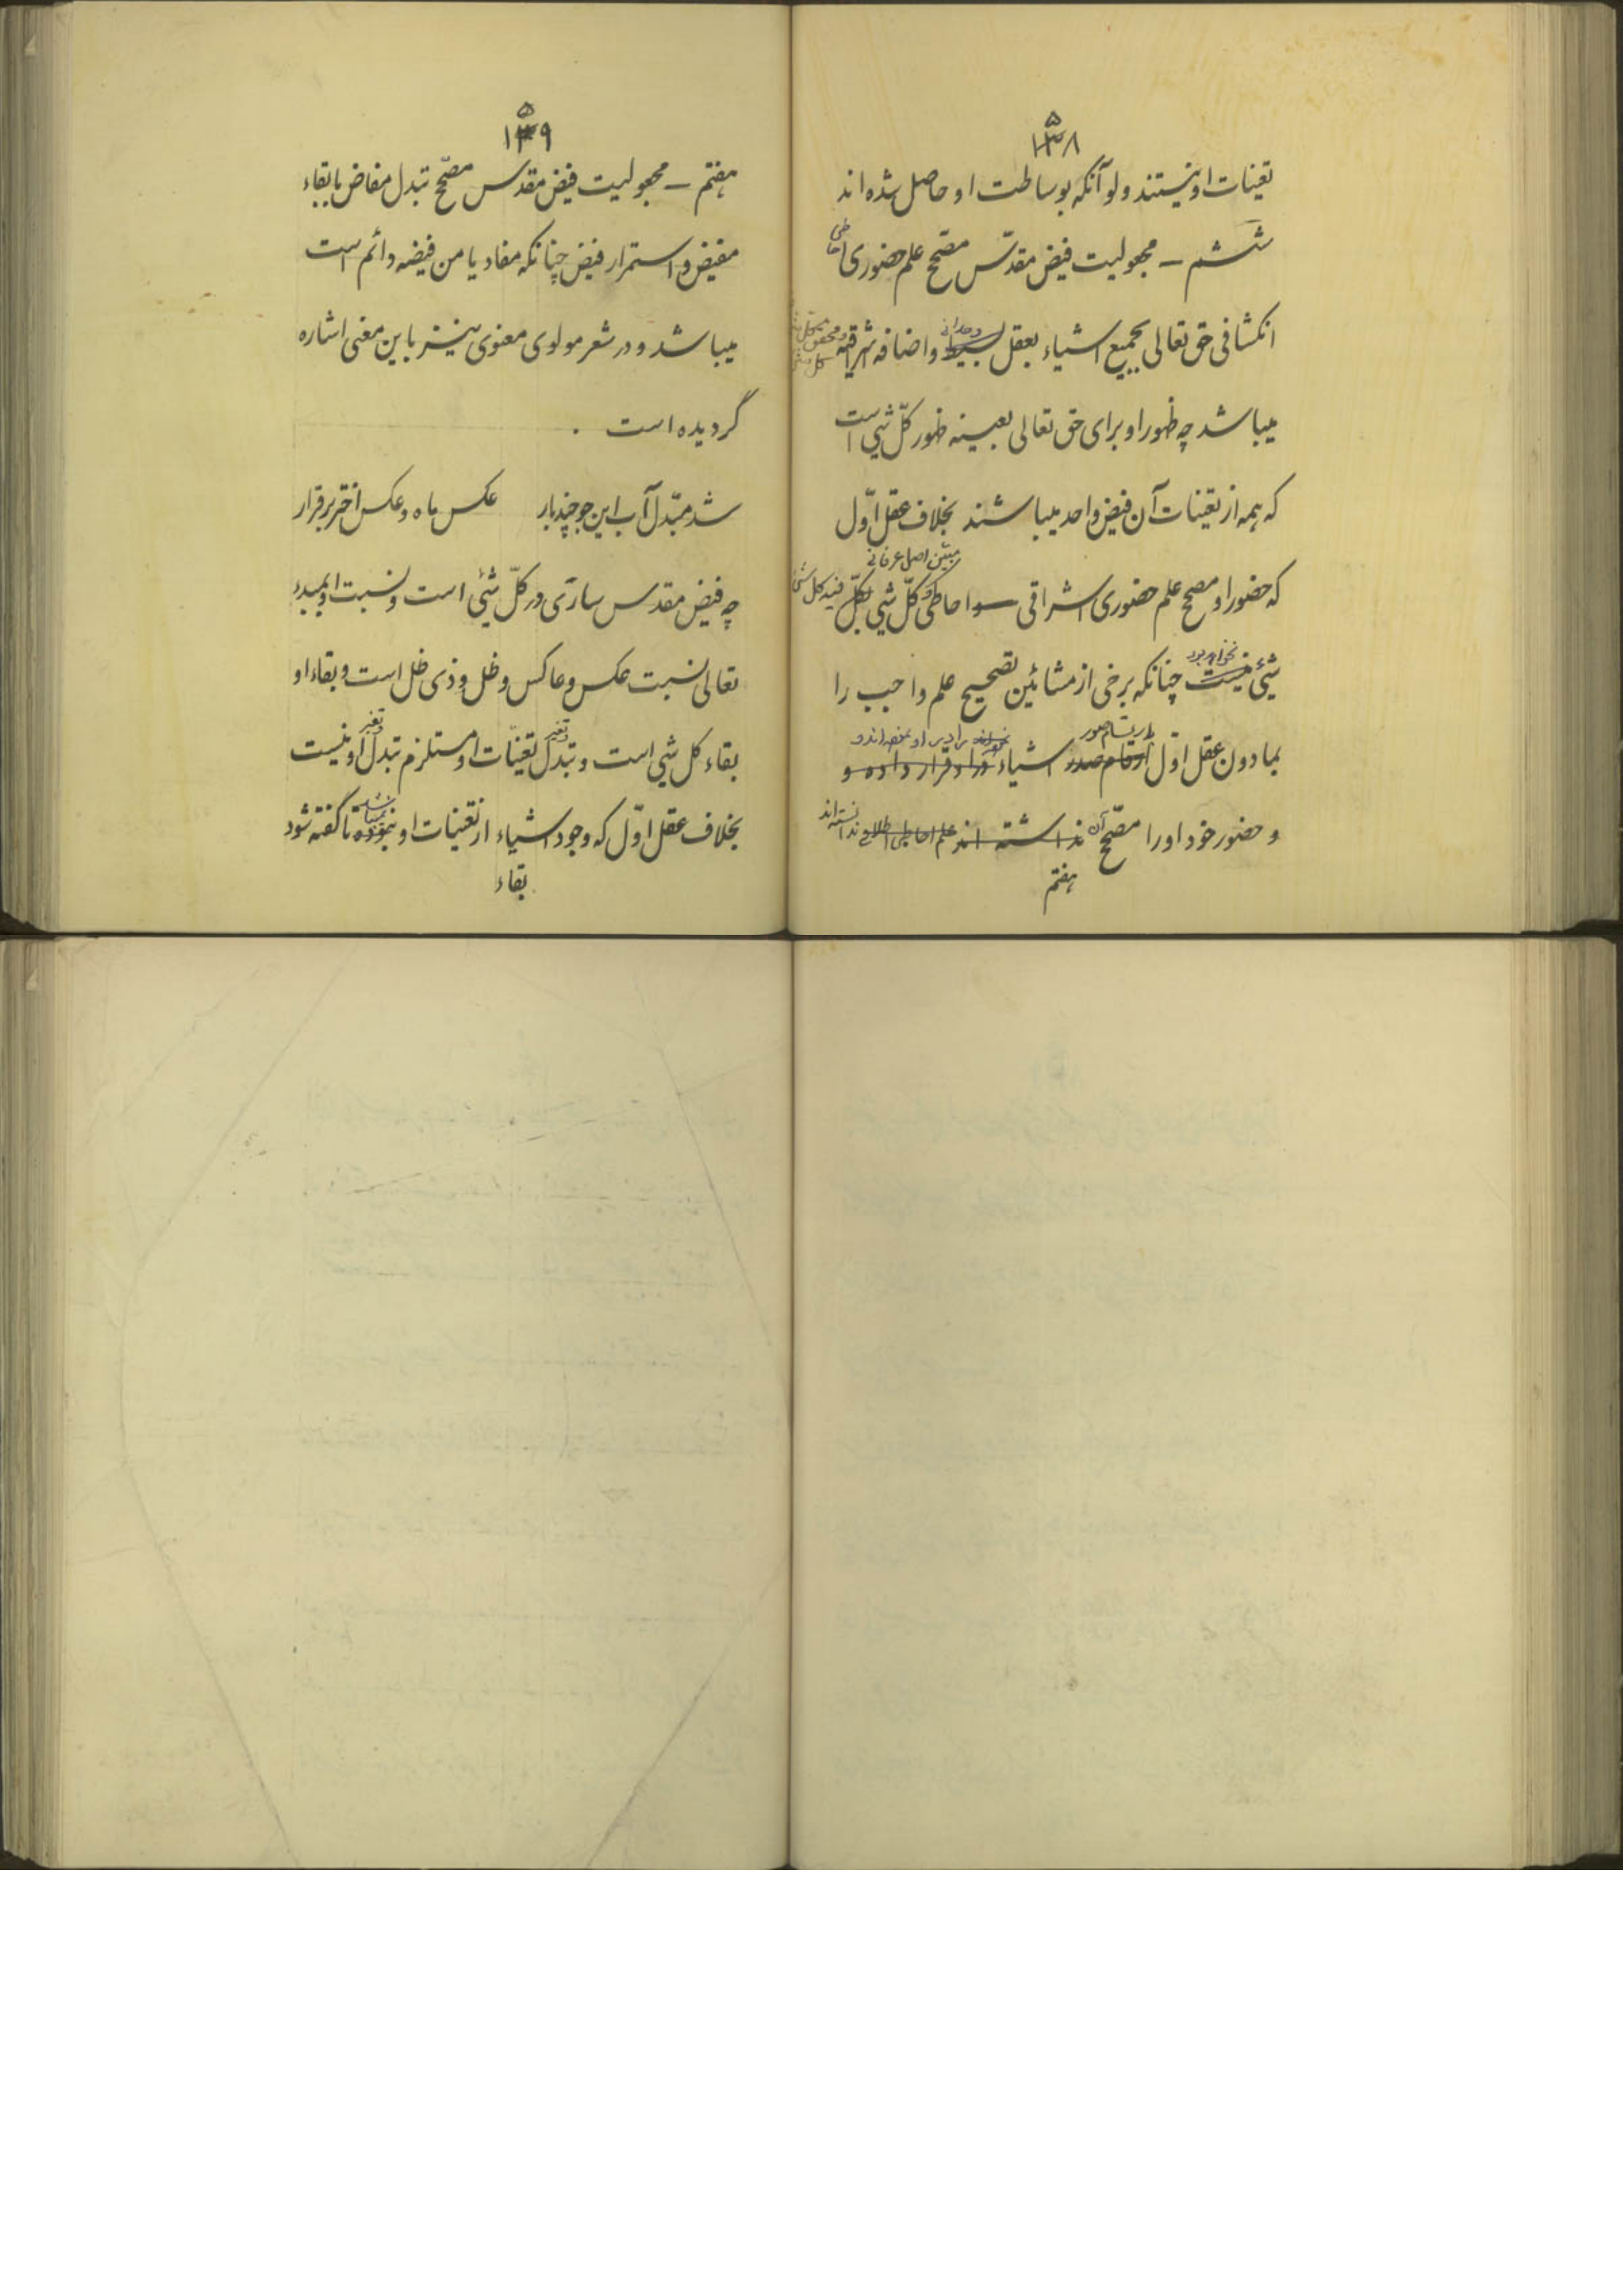 ۱۵۸
تعینات او نیستند ولو آنکه بوساطت او حاصل شده‌اند
ششم – مجعولیت فیض مقدّس مصحّح علم حضوری احاطی
انکشافی حق تعالی بجمیع اشیاء بعقل بسیط وحدانی و اضافه اشراقیه
میباشد چه ظهور او برای حق تعالی بعینه ظهور کلّ شیٔ است
که همه از تعینات آن فیض واحد میباشند بخلاف عقل اوّل
مبیّن اصل عرفانی
که حضور او مصحح علم حضوری اشراقی احاطی کلّ شیٔ بکلّ فیه کل شیٔ
نخواهد بود
شیٔ نیست چنانکه برخی از مشائین تصحیح علم واجب را
بارتسام صور
بمادون عقل اوّل اشیاء در او قرار داده و
و حضور خود او را مصحّح آن نداشته‌اند ندانسته‌اند
هفتم
۱۵۹
هفتم – مجعولیت فیض مقدس مصحّح تبدل مفاض با بقاء
مفیض و استمرار فیض چنانکه مفاد یا من فیضه دائم است
میباشد و در شعر مولوی معنوی نیز باین معنی اشاره
گردیده است .
شد مبدّل آب این جو چند بار عکس ماه و عکس اختر برقرار
چه فیض مقدس ساری در کلّ شیٔ است و نسبت او بمبدء
تعالی نسبت عکس و عاکس و ظل و ذی ظل است و بقاء او
بقاء کل شیٔ است و تبدل و تغیر تعینات او مستلزم تبدل و تغیر او نیست
بخلاف عقل اوّل که وجود اشیاء از تعینات او نبوده تا گفته شود
بقاء